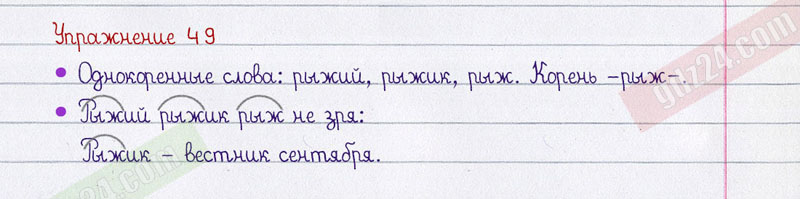 Упражнение 49
• Однокоренные слова: рыжий, рыжик, рыж. Корень -рыж-.
• Рыжий рыжик рыж не зря:
Рыжик - вестник сентября.
gdz24.com
gdz24.com